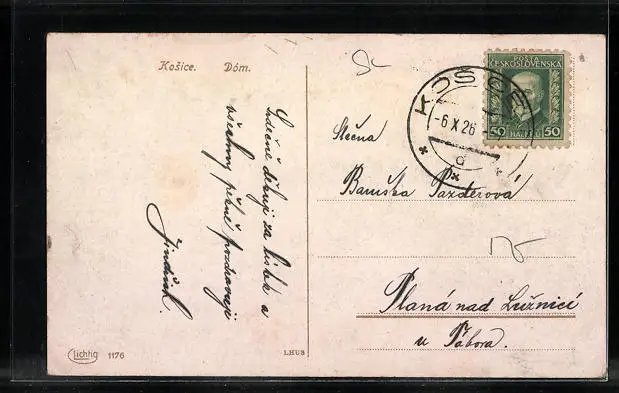 Košice. Dóm.
Srdečně děkuji za lístek a
všechny pěkně pozdravuji
Jindřich.
Lichtig 1176
LHUB
POŠTA
ČESKOSLOVENSKÁ
50 HALÉŘŮ 50
KOŠICE
-6.X.26
d
Slečna
Baruška Pazderová
Planá nad Lužnicí
u Tábora.